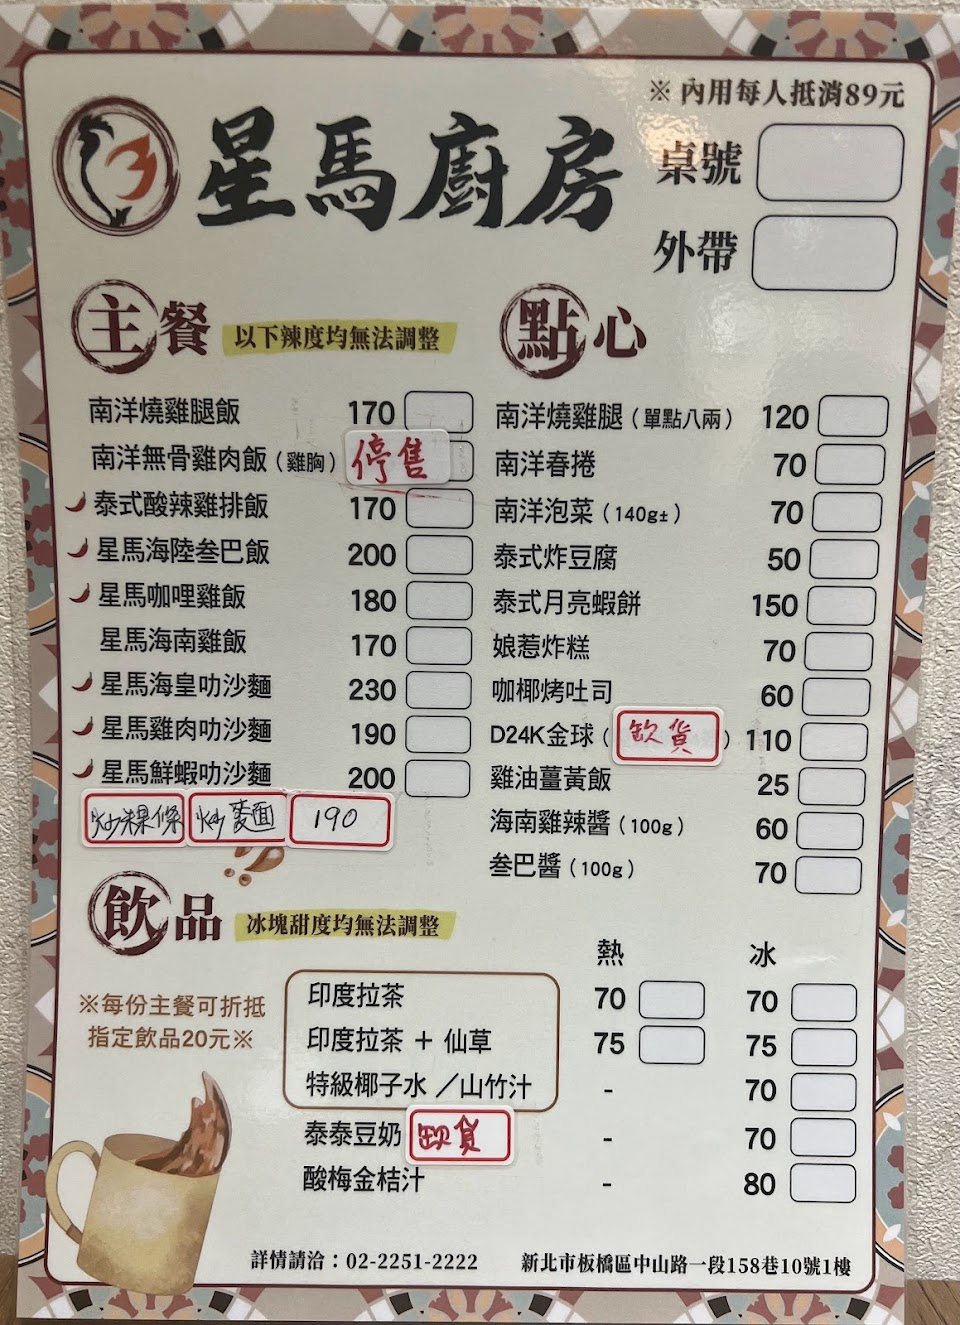 ※ 內用每人抵消89元
星馬廚房
桌號
外帶
主餐 以下辣度均無法調整
南洋燒雞腿飯 170
南洋無骨雞肉飯（雞胸） 停售
泰式酸辣雞排飯 170
星馬海陸叁巴飯 200
星馬咖哩雞飯 180
星馬海南雞飯 170
星馬海皇叻沙麵 230
星馬雞肉叻沙麵 190
星馬鮮蝦叻沙麵 200
炒粿條 炒麵 190
點心
南洋燒雞腿（單點八兩） 120
南洋春捲 70
南洋泡菜（140g±） 70
泰式炸豆腐 50
泰式月亮蝦餅 150
娘惹炸糕 70
咖椰烤吐司 60
D24K金球（ 缺貨 ） 110
雞油薑黃飯 25
海南雞辣醬（100g） 60
叁巴醬（100g） 70
飲品 冰塊甜度均無法調整
熱 冰
※每份主餐可折抵
指定飲品20元※
印度拉茶 70 70
印度拉茶 + 仙草 75 75
特級椰子水 ／山竹汁 - 70
泰泰豆奶 缺貨 - 70
酸梅金桔汁 - 80
詳情請洽：02-2251-2222 新北市板橋區中山路一段158巷10號1樓